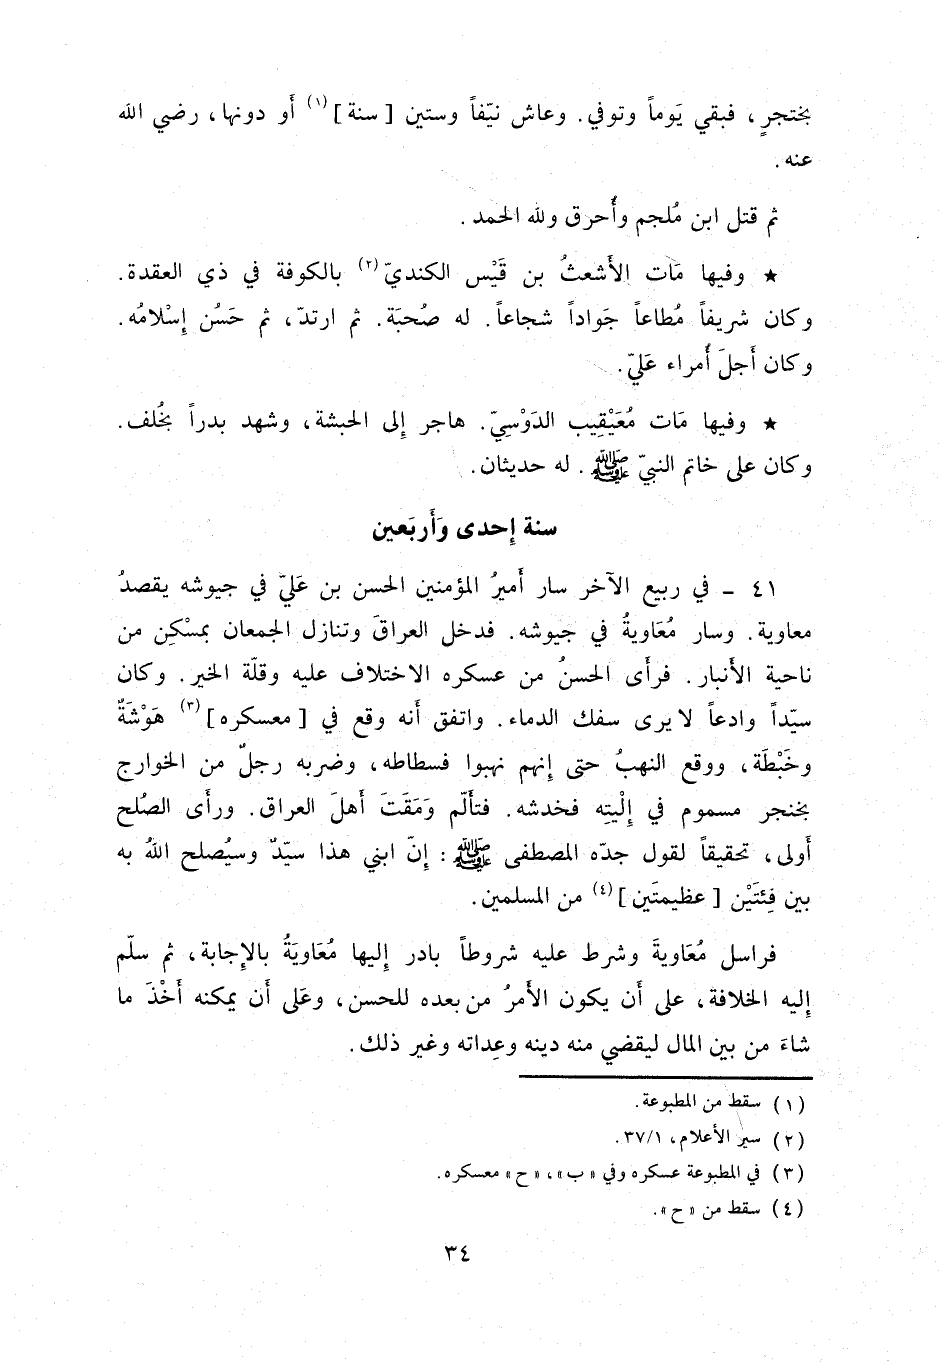 بختجرٍ، فبقي يَوماً وتوفي. وعاش نيّفاً وستين [سنة](١) أو دونها، رضي الله
عنه.
ثم قتل ابن مُلجم وأُحرق ولله الحمد.
★ وفيها مَات الأشعثُ بن قَيْس الكنديّ(٢) بالكوفة في ذي العقدة.
وكان شريفاً مُطاعاً جَواداً شجاعاً. له صُحبَة. ثم ارتدّ، ثم حَسُن إسْلامُه.
وكان أجلَ أُمراء عَليّ.
★ وفيها مَات مُعَيْقِيب الدَوْسِيّ. هاجر إلى الحبشة، وشهد بدراً بخُلف.
وكان على خاتم النبيّ ﷺ. له حديثان.
سنة إحدى وَأربَعين
٤١ ـ في ربيع الآخر سار أميرُ المؤمنين الحسن بن عَليّ في جيوشه يقصدُ
معاوية. وسار مُعَاويةُ في جيوشه. فدخل العراقَ وتنازل الجمعان بمسْكِن من
ناحية الأنبار. فرأى الحسنُ من عسكره الاختلاف عليه وقلّة الخير. وكان
سيّداً وادعاً لا يرى سفك الدماء. واتفق أنه وقع في [معسكره](٣) هَوْشَةٌ
وخَبْطَة، ووقع النهبُ حتى إنهم نهبوا فسطاطه، وضربه رجلٌ من الخوارج
بخنجر مسموم في إلْيتِه فخدشه. فتألّم وَمَقَتَ أهلَ العراق. ورأى الصُلح
أولى، تحقيقاً لقول جدّه المصطفى ﷺ: إنّ ابني هذا سيّدٌ وسيُصلح اللهُ به
بين فِئتَيْن [عظيمتَين](٤) من المسلمين.
فراسل مُعَاويةَ وشرط عليه شروطاً بادر إليها مُعَاويَةُ بالإجابة، ثم سلّم
إليه الخلافة، على أن يكون الأمرُ من بعده للحسن، وعَلى أن يمكنه أخْذَ ما
شاءَ من بين المال ليقضي منه دينه وعِداته وغير ذلك.
(١) سقط من المطبوعة.
(٢) سير الأعلام، ٣٧/١.
(٣) في المطبوعة عسكره وفي «ب»، «ح» معسكره.
(٤) سقط من «ح».
٣٤